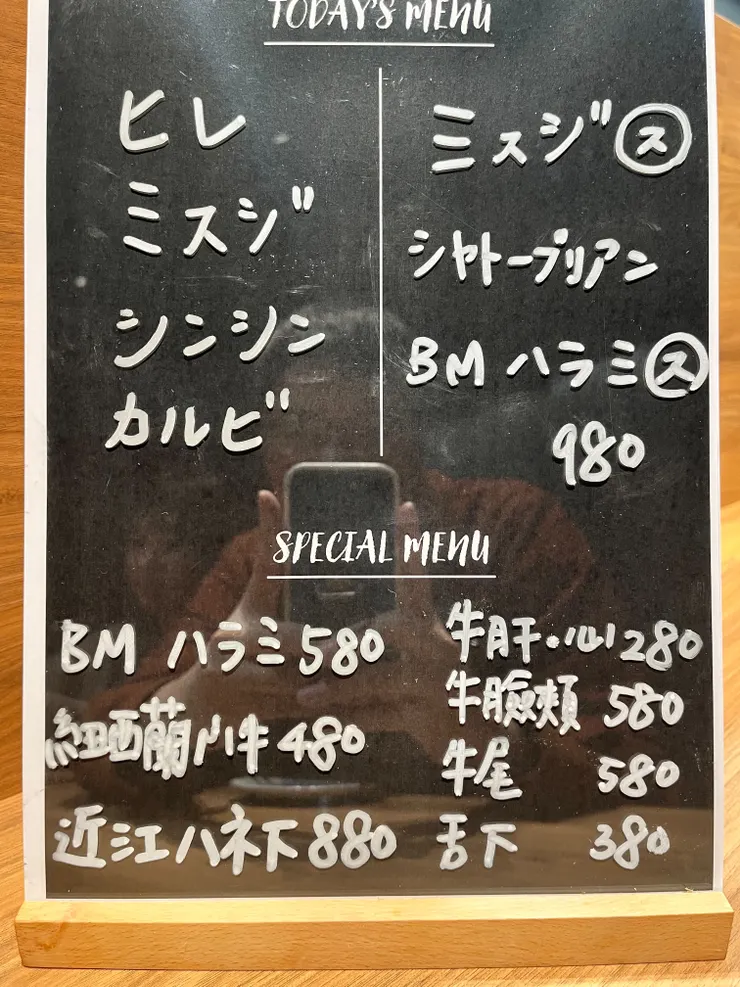 TODAY'S MENU
ヒレ
ミスジ
シンシン
カルビ
ミスジ㋜
シャトーブリアン
BM ハラミ㋜
980
SPECIAL MENU
BM ハラミ 580
紐西蘭小牛 480
近江ハネ下 880
牛肝・心 280
牛臉頰 580
牛尾 580
舌下 380